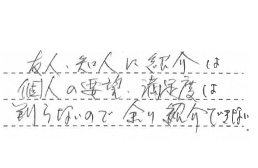 友人、知人に紹介は
個人の要望、満足度は
判らないので余り紹介できない